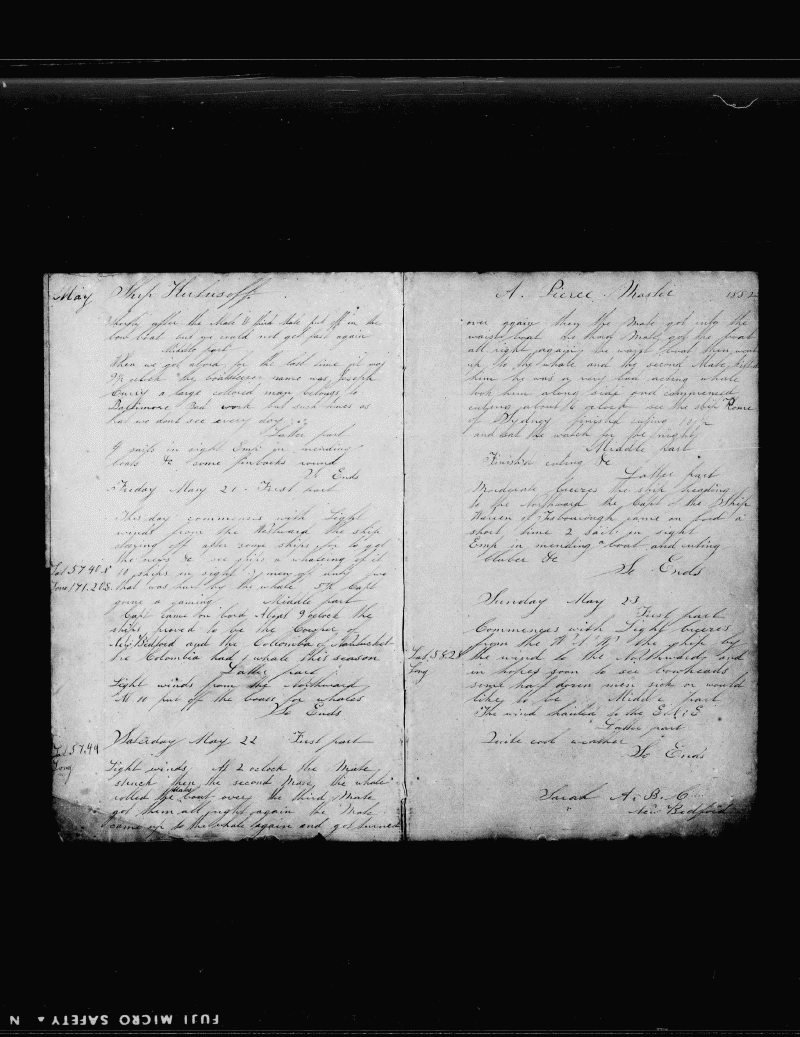 May Ship Kutusoff
shortly after the Mate & third Mate put off in the
bow boat but we could not get fast again
Middle part
When we got aboard for the last time it was
9½ oclock the boatsteerer name was Joseph
Curry a large colored man belongs to
Baltimore Bad work but such times as
that we dont see every day
Latter part
9 sails in sight Emp in mending
boats &c some finbacks round
So Ends
Friday May 21 First part
This day commences with Light
winds from the Westward the ship
laying off after some ships for to get
the news &c
Lat 57.40.
10 ships in sight
Long 171.20
that was hurt by the whale 5 PM Capt
gone a gaming Middle part
Capt came on bord About 9 oclock the
ships proved to be the Cowper of
New Bedford and the Colombia of Nantucket
the Colombia had 1 whale this season
Latter part
Light winds from the Northward
At 10 put off the boats for whales
So Ends
Saturday May 22 First part
Lat 57.49
Long
Light winds At 2 oclock the Mate
struck then the second Mate the whale
rolled the Mates boat over the third Mate
got them all right again the Mate
came up to the whale again and got turned
A. Pierce Master 1852
over again then the Mate got into the
waist boat the third Mate got the boat
all right again the waist boat then went
up to the whale and the second Mate
him he was a very bad acting whale
took him along side and commenced
cutting about 6 oclock see the ship Rome
of Sydney finished cutting
and set the watch for the night
Middle part
Finished cuting &c
Latter part
Moderate breezes the ship heading
to the Northward the Capt of the Ship
Warren of came on bord a
short time 2 sail in sight
Emp in mending boat and cuting
bluber &c
So Ends
Sunday May 23
First part
Commences with Light breezes
from the the ship by
Lat 58.28
the wind to the Northward and
Long
in hopes soon to see bowheads
some half dozen men sick or would
like to be Middle part
The wind hauled to the
Latter part
Quite cool weather
So Ends
Sarah A. B. C
New Bedford
FUJI MICRO SAFETY ▲ N